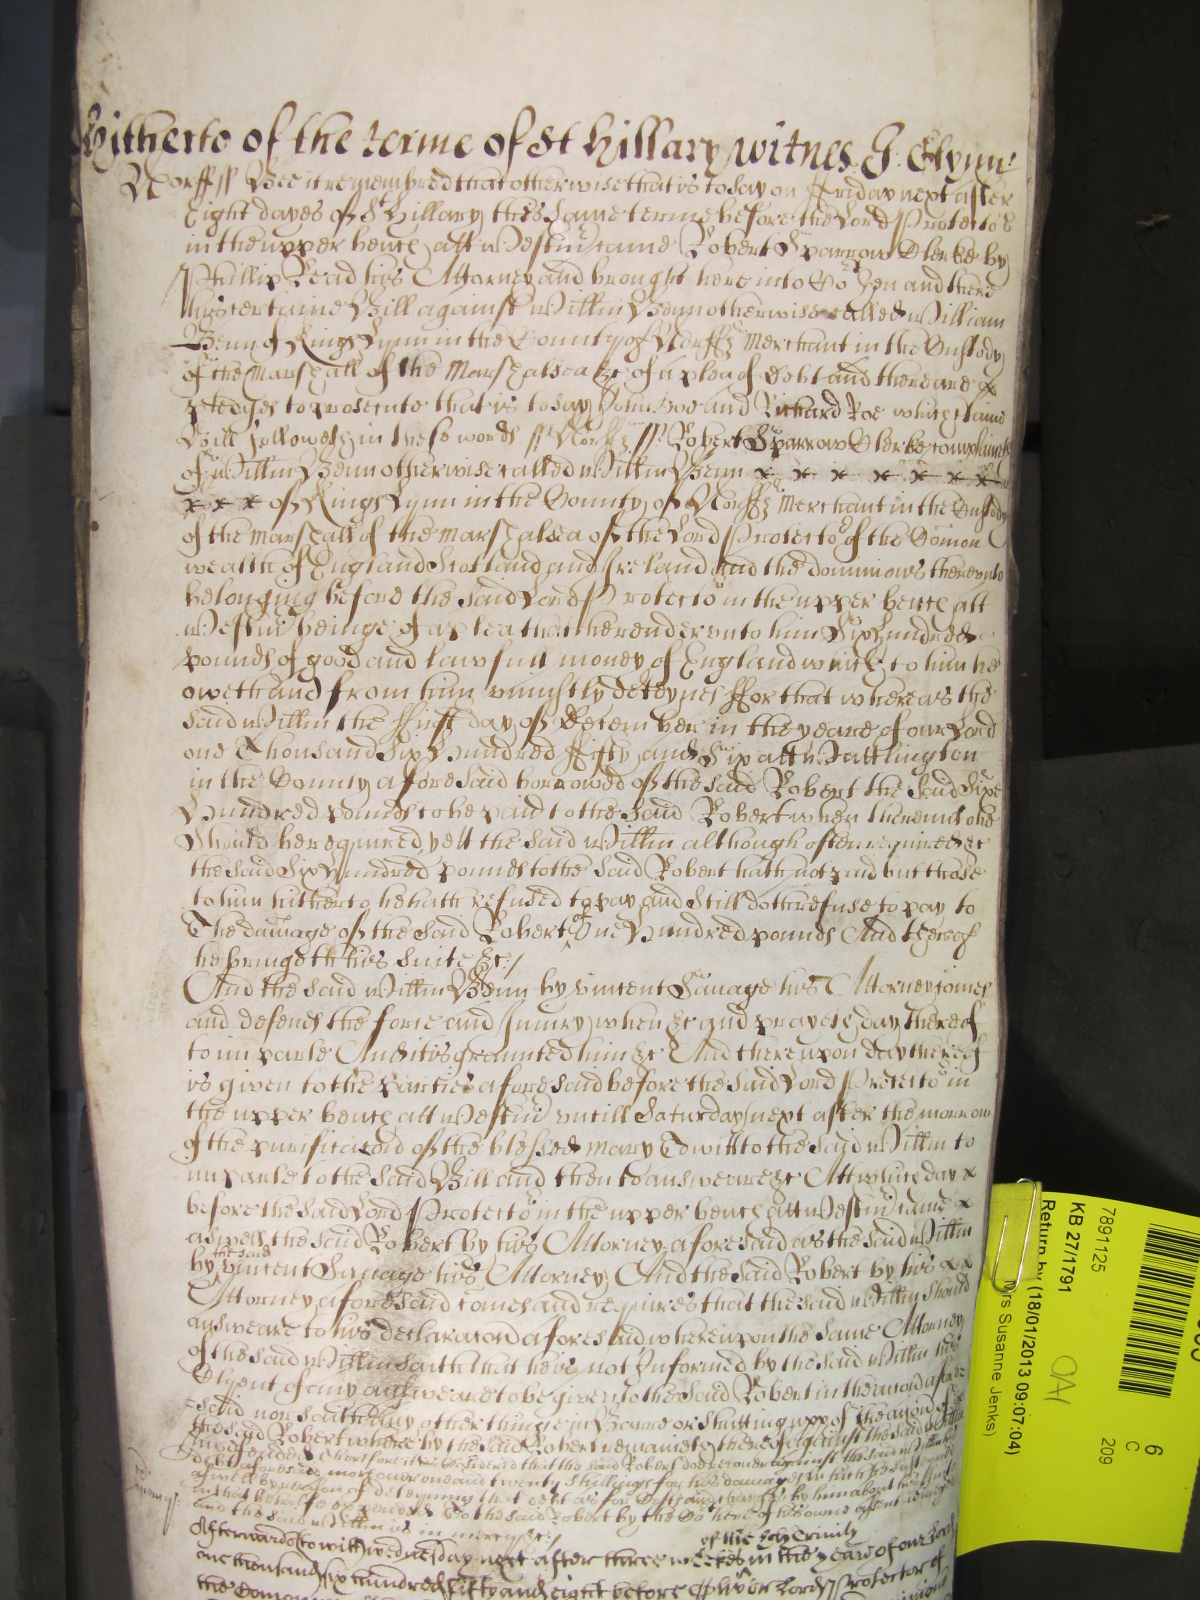 Hitherto of the terme of St Hillary witnes J. Glynn
Norff ss Bee it remembred that otherwise that is to say on Friday next after
Eight dayes of St Hillary this same terme before the Lord Protector
in the upper bench att Westmr came Robert Sparrow Clerke by
Phillip Read his Attorney and brought here into Court then and there
his certaine Bill against Willm Benn otherwise called William
Benn of Kings Lynn in the County of Norff Merchant in the Custody
of the Marshall of the Marshalsea &c of a plea of debt and there are x
pledges to prosecute that is to say John Doe and Richard Roe which said
Bill followeth in these words ss Norff ss Robert Sparrow Clerke complaineth
of Willm Benn otherwise called Willm Benn x x x x x x x
x x x of Kings Lynn in the County of Norff Merchant in the Custody
of the Marshall of the Marshalsea of the Lord Protector of the Comon
wealth of England Scotland and Ireland and the dominions thereunto
belonging before the said Lord Protector in the upper bench att
Westmr beinge of a plea that he render unto him Six hundred
pounds of good and lawfull money of England which to him he
oweth and from him uniustly deteynes ffor that whereas the
said Willm the ffirst day of December in the yeare of our Lord
one Thousand Six Hundred ffifty and Six att Wattlington
in the County aforesaid borrowed of the said Robert the said Sixe
Hundred pounds to be paid to the said Robert when thereunto he
Should be required yett the said Willm although often required &c
the said Six hundred pounds to the said Robert hath not paid but those
to him hitherto he hath refused to pay and still doth refuse to pay to
The damage of the said Robert of One Hundred pounds And thereof
he bringeth his suite &c /
And the said Willm Benn by Vincent Savage his Attorney comes
and defends the force and Iniury when &c and prayeth day thereof
to imparle And it is graunted him &c And thereupon day thereof
is given to the parties aforesaid before the said Lord Protector in
the upper bench att Westmr untill Saturday next after the morrow
of the purificacon of the blessed Mary To witt to the said Willm to
imparle to the said Bill and then to answeare &c Att which day x
before the said Lord Protector in the upper bench att Westmr came x
as well the said Robert by his Attorney aforesaid as the said Willm
by the said Vincent Savage his Attorney And the said Robert by his x x
Attorney aforesaid comes and requires that the said Willm should
answeare to his declaracon aforesaid whereupon the same Attorney
of the said Willm saith that he is not Informed by the said Willm his
Clyent of any answeare to be given to the said Robert in the accon afore
said nor saith any other thinge in Barre or Shutting upp of the accon of
the said Robert whereby the said Robert remaineth thereof against the said Willm
undefended Therefore it is considered that the said Robert doe recover against the said Willm his
debt aforesaid and twenty shillings for his damages which he sustayned
as well by reason of deteyning that debt as for costs and charges by him about his suite
in that behalfe expended to the said Robert by the Court here of his owne assent adiudged
and the said Willm is in mercy &c /
Afterwards to witt wednesday next after three weekes of the holy Trinity in the yeare of our Lord
one thousand six hundred fifty and eight before our Lord Protector of
the Comon
Return by (18/01/2013 09:07:04)
Mrs Susanne Jenks)
KB 27/1791
7891125
OA1
6
C
209